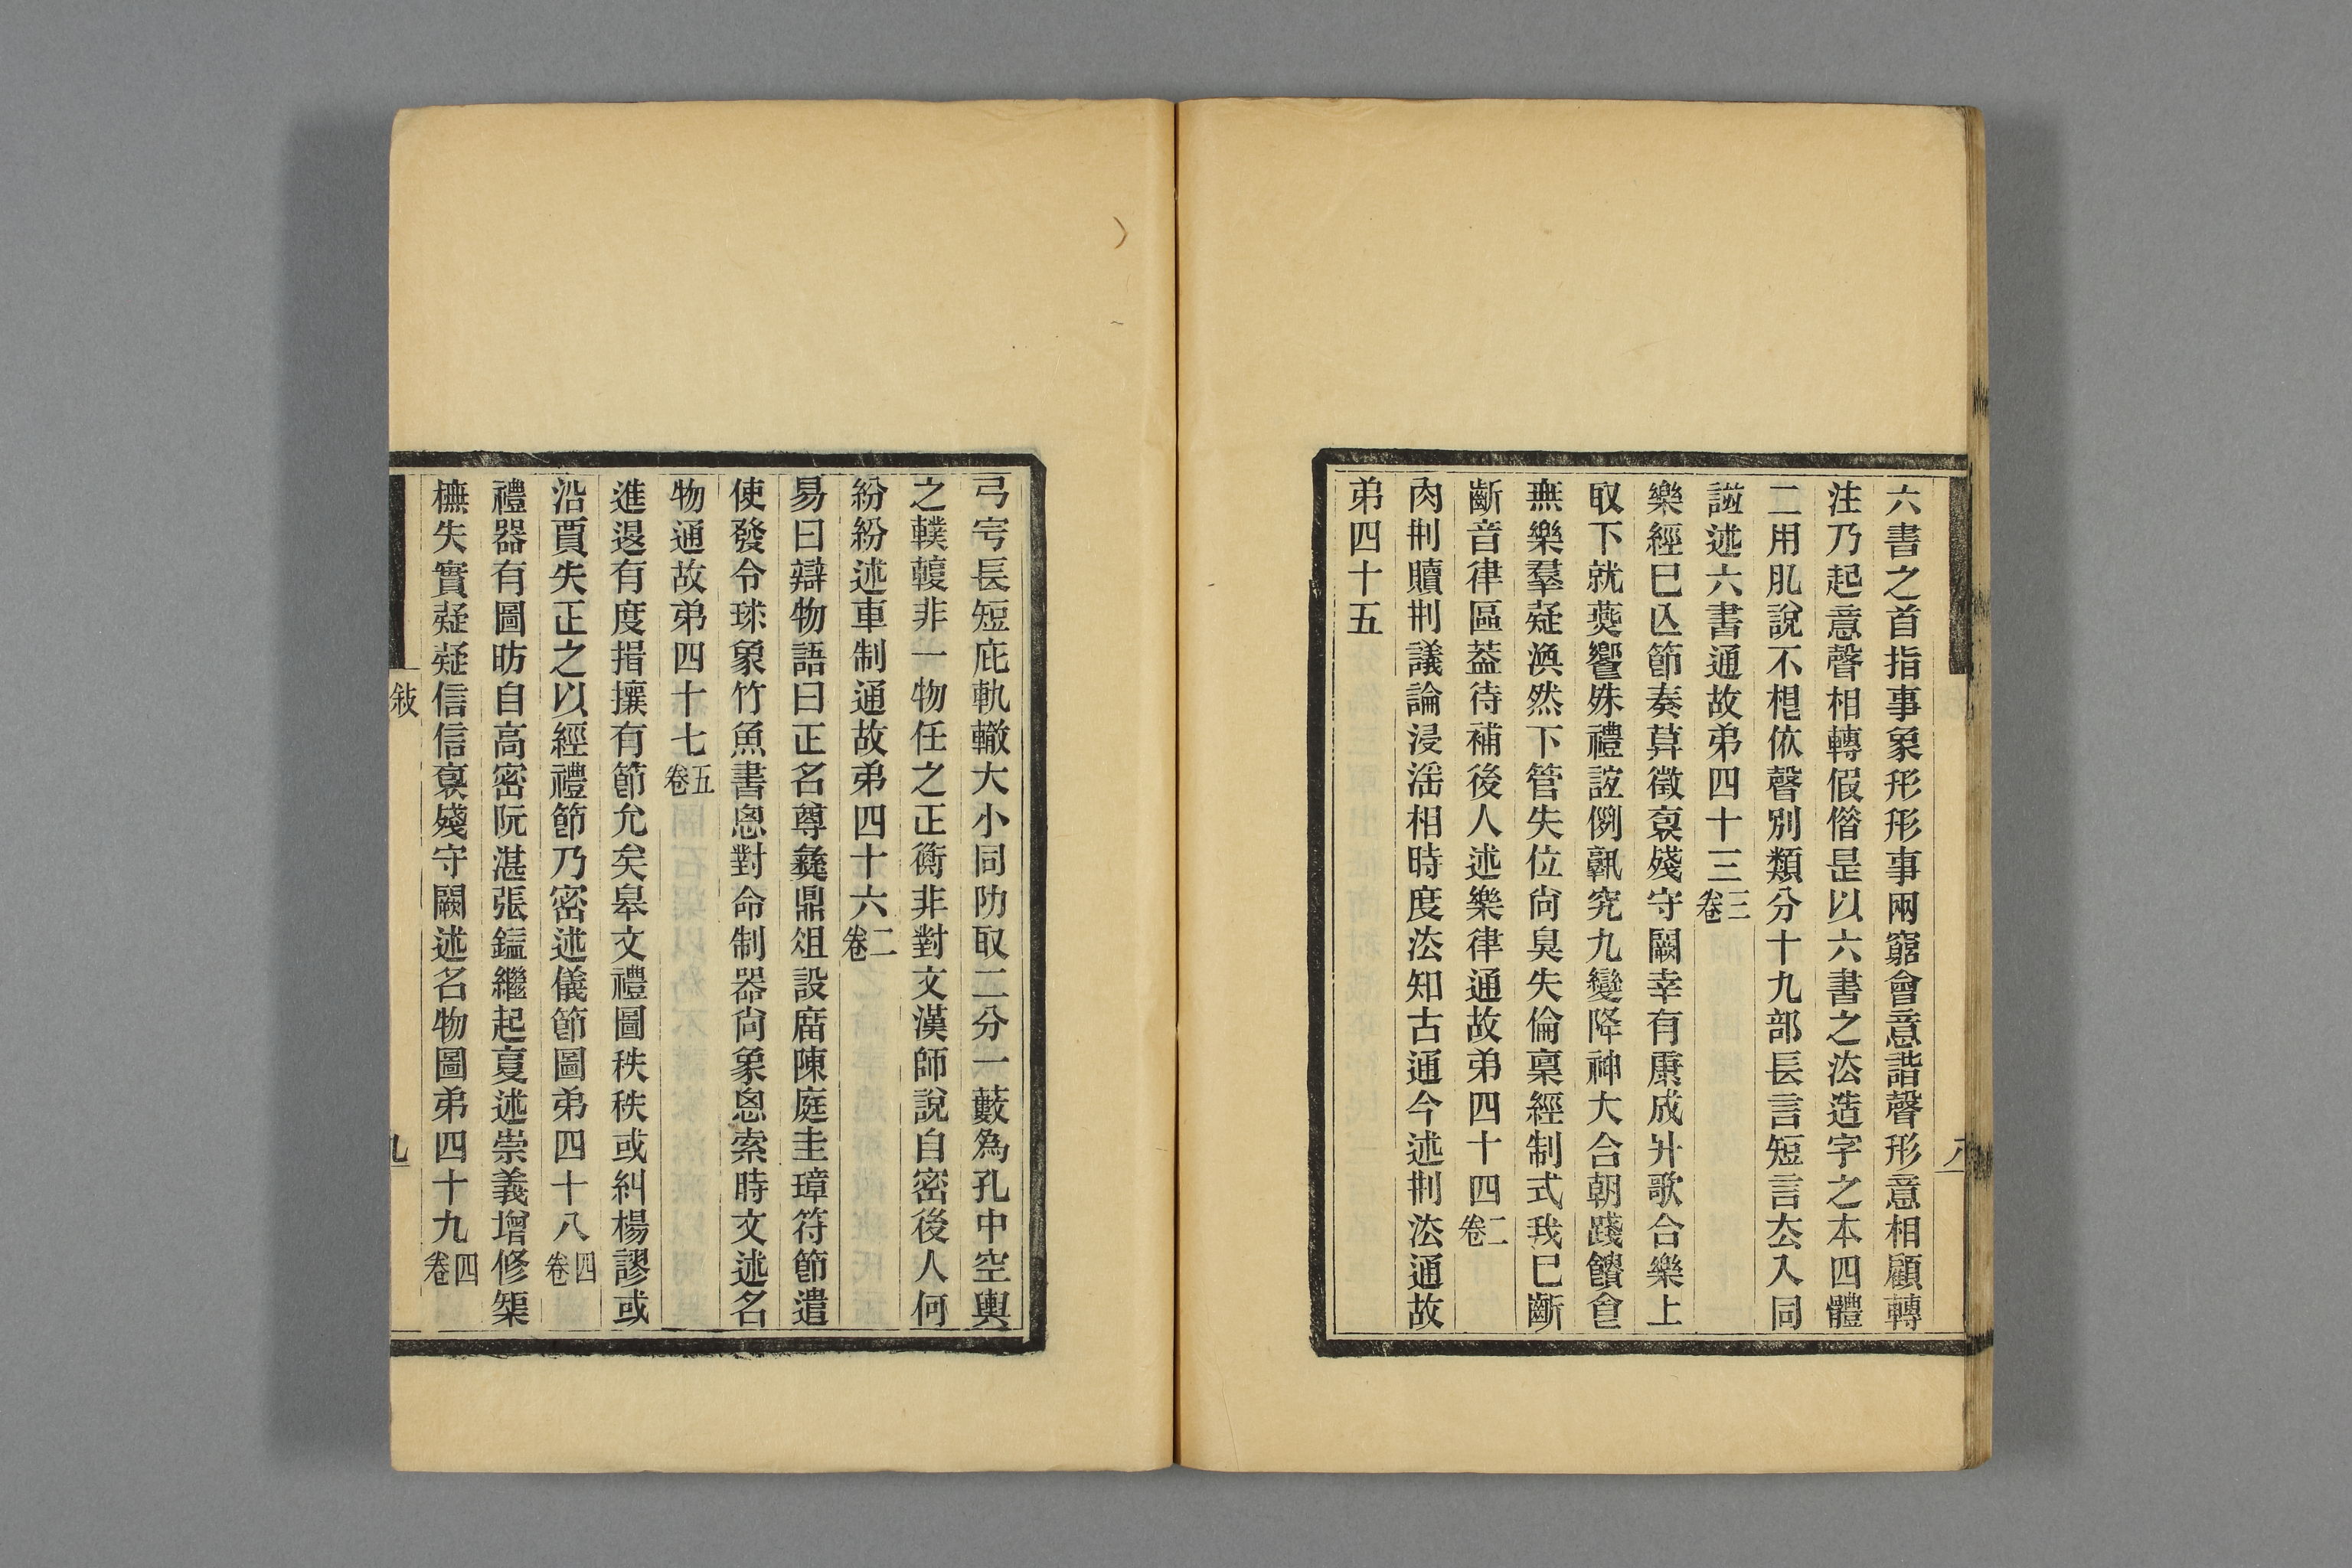 六書之首指事象形形事兩窮會意諧聲形意相顧轉
注乃起意聲相轉假借是以六書之法造字之本四體
二用肊說不相依聲別類分十九部長言短言去入同
諡述六書通故弟四十三三卷
樂經已亾節奏莫徵裒殘守闕幸有康成升歌合樂上
取下就燕饗殊禮誼例孰究九變降神大合朝踐饋食
無樂羣疑渙然下管失位尚臭失倫稟經制式我已斷
斷音律區葢待補後人述樂律通故弟四十四二卷
肉刑贖刑議論浸淫相時度法知古通今述刑法通故
弟四十五
弓穹長短庇軌轍大小同阞取二分一藪為孔中空輿
之轐輹非一物任之正衡非對文漢師說自密後人何
紛紛述車制通故弟四十六二卷
易曰辯物語曰正名尊彝鼎俎設席陳庭圭璋符節遣
使發令球象竹魚書思對命制器尚象思索時文述名
物通故弟四十七五卷
進退有度揖攘有節允矣皋文禮圖秩秩或糾楊謬或
沿賈失正之以經禮節乃密述儀節圖弟四十八四卷
禮器有圖昉自高密阮湛張鎰繼起夏述崇義增修榘
橅失實疑疑信信裒殘守闕述名物圖弟四十九四卷
敍
九
八